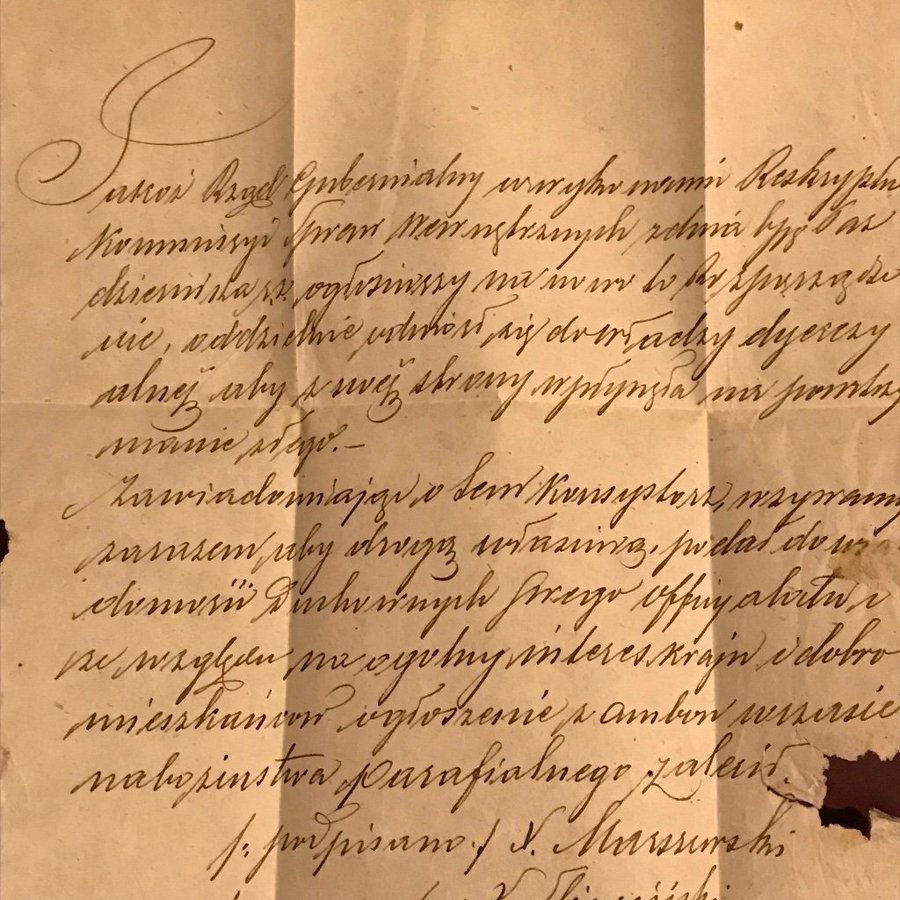 Jakoż Rząd Gubernialny w wykonaniu Reskryptu
Kommissyi Spraw Wewnętrznych z dnia Paź
dziernika ogłosiwszy na nowo to Rozporządze
nie, oddzielnie odniósł się do władzy dyecezy
alnej aby z swej strony wpłynęła na powstrzy
manie złego.—
Zawiadamiając o tem Konsystorz, wzywamy
zarazem aby drogą właściwą, podał do wia
domości Duchownych swego Officyalatu i
ze względu na ogólny interes kraju i dobro
mieszkańców ogłoszenie z ambon w czasie
nabożeństwa parafialnego zalecił.
/: podpisano :/ X. Marszewski
X.